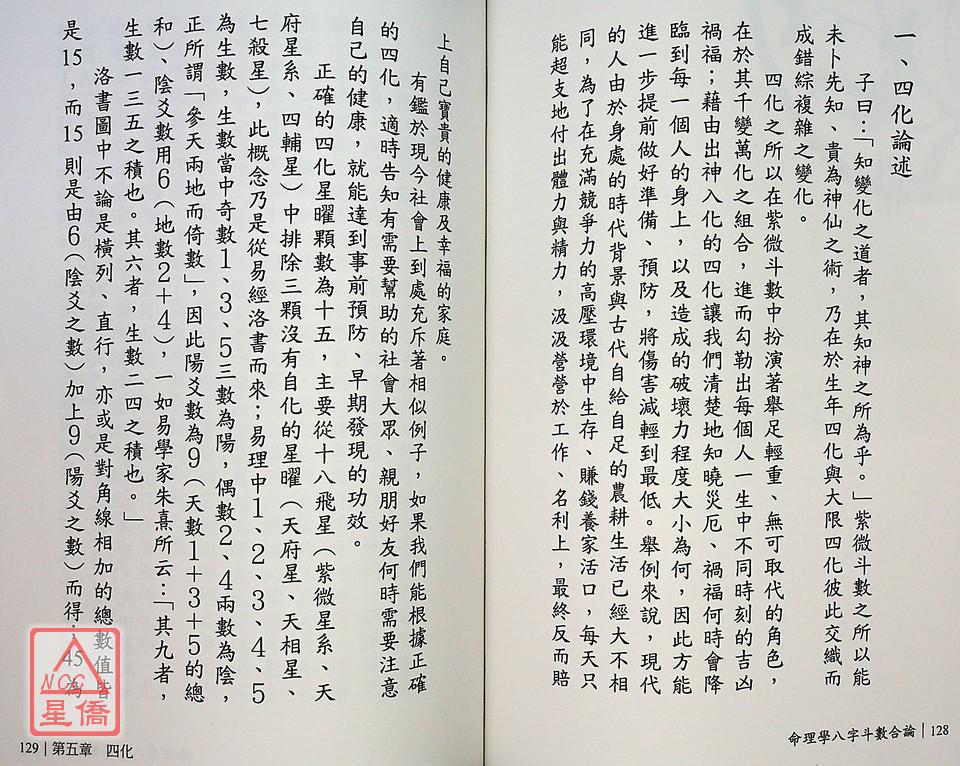 一、四化論述
子曰：「知變化之道者，其知神之所為乎。」紫微斗數之所以能
未卜先知、貴為神仙之術，乃在於生年四化與大限四化彼此交織而
成錯綜複雜之變化。
四化之所以在紫微斗數中扮演著舉足輕重、無可取代的角色，
在於其千變萬化之組合，進而勾勒出每個人一生中不同時刻的吉凶
禍福；藉由出神入化的四化讓我們清楚地知曉災厄、禍福何時會降
臨到每一個人的身上，以及造成的破壞力程度大小為何，因此方能
進一步提前做好準備、預防，將傷害減輕到最低。舉例來說，現代
的人由於身處的時代背景與古代自給自足的農耕生活已經大不相
同，為了在充滿競爭力的高壓環境中生存、賺錢養家活口，每天只
能超支地付出體力與精力，汲汲營營於工作、名利上，最終反而賠
命理學八字斗數合論|128
上自己寶貴的健康及幸福的家庭。
有鑑於現今社會上到處充斥著相似例子，如果我們能根據正確
的四化，適時告知有需要幫助的社會大眾、親朋好友何時需要注意
自己的健康，就能達到事前預防、早期發現的功效。
正確的四化星曜顆數為十五，主要從十八飛星（紫微星系、天
府星系、四輔星）中排除三顆沒有自化的星曜（天府星、天相星、
七殺星），此概念乃是從易經洛書而來；易理中1、2、3、4、5
為生數，生數當中奇數1、3、5三數為陽，偶數2、4兩數為陰，
正所謂「參天兩地而倚數」，因此陽爻數為9（天數1+3+5的總
和）、陰爻數用6（地數2+4），一如易學家朱熹所云：「其九者，
生數一三五之積也。其六者，生數二四之積也。」
洛書圖中不論是橫列、直行，亦或是對角線相加的總數值皆
是15，而15則是由6（陰爻之數）加上9（陽爻之數）而得；45為
NCC
星僑
129|第五章 四化